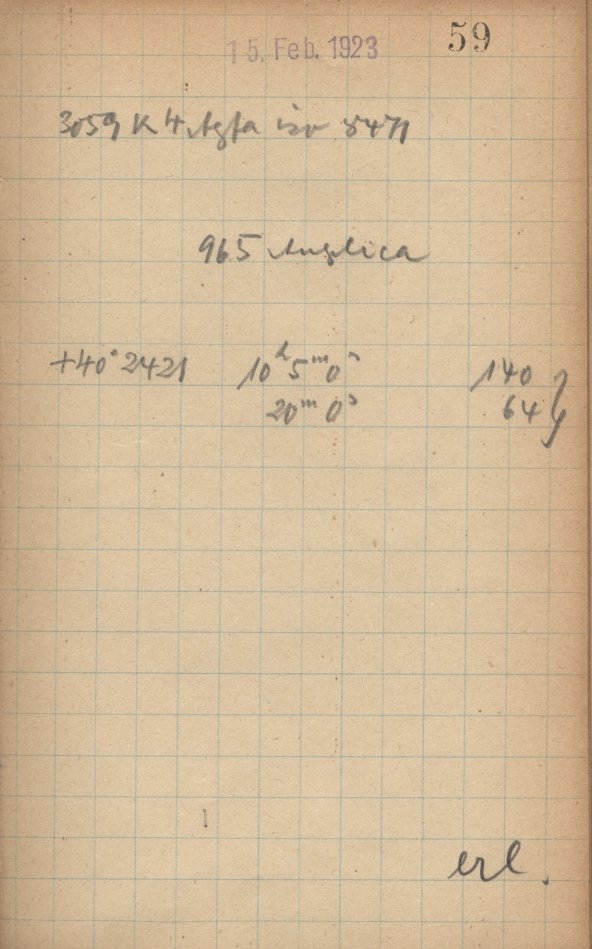 15. Feb. 1923 59
3059 K 4 Agfa iso 8471
965 Angelica
+40° 2421 10ʰ 5ᵐ 0ˢ 140
20ᵐ 0ˢ 64
erl.